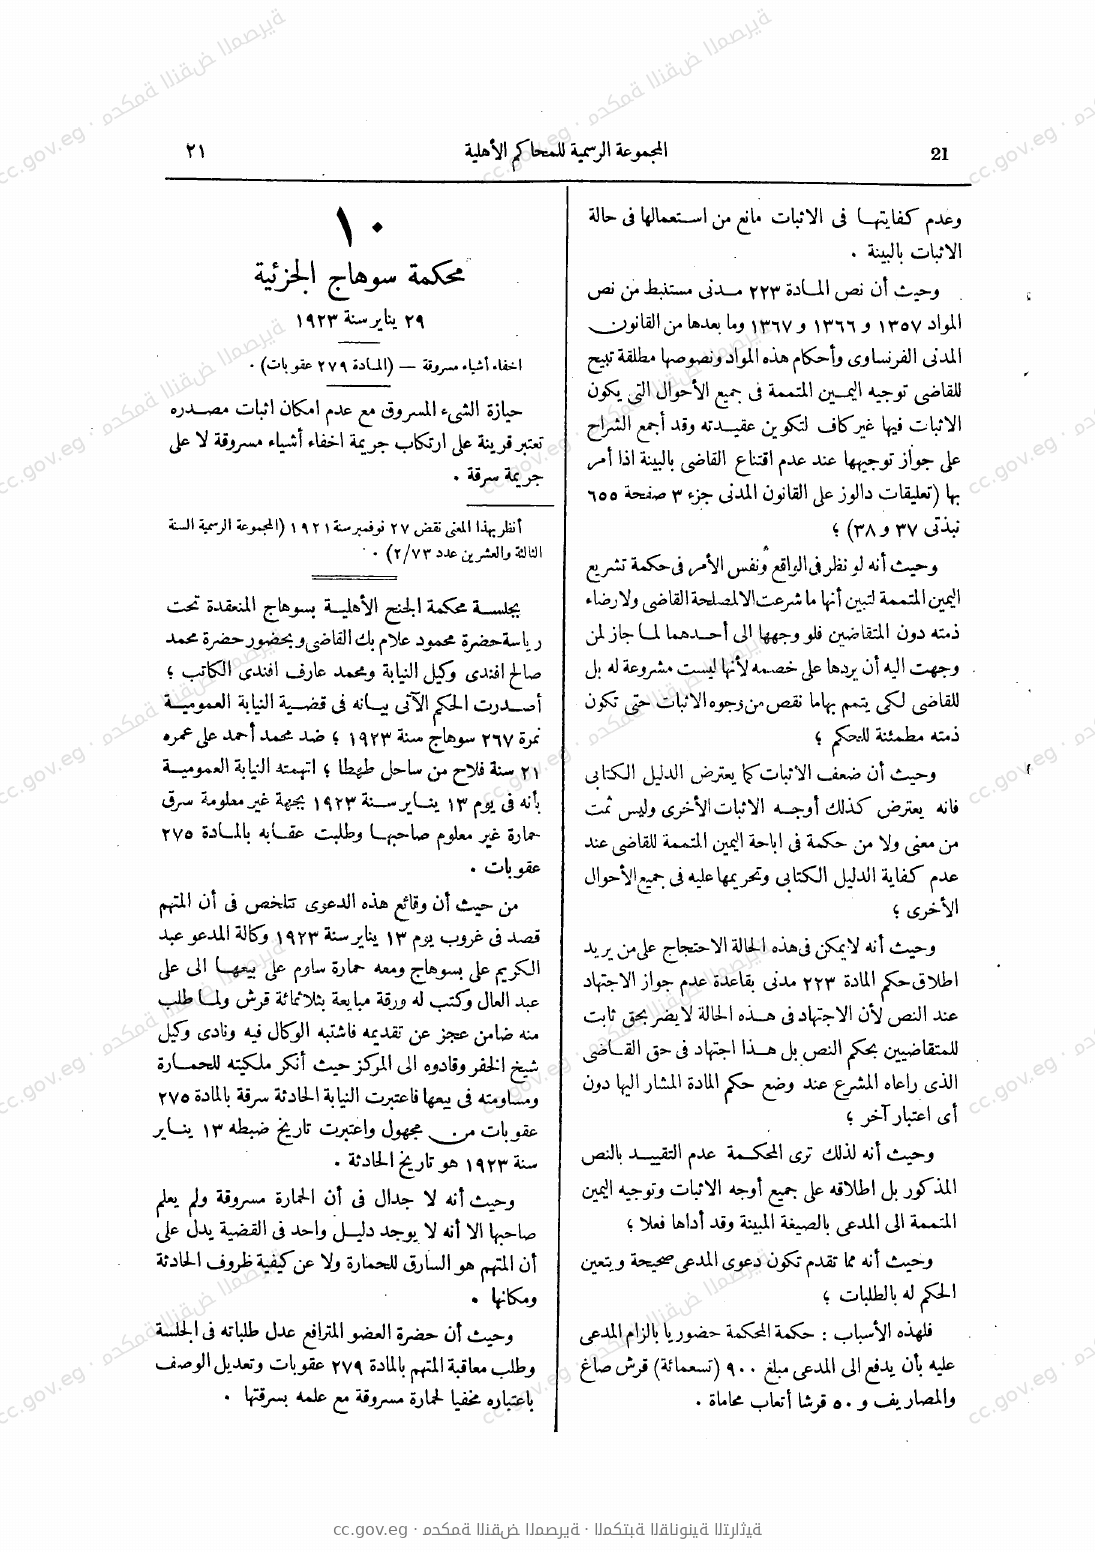 21
المجموعة الرسمية للمحاكم الأهلية
٢١
وعدم كفايتها فى الاثبات مانع من استعمالها فى حالة
الاثبات بالبينة .
وحيث أن نص المادة ٢٢٣ مدنى مستنبط من نص
المواد ١٣٥٧ و ١٣٦٦ و ١٣٦٧ وما بعدها من القانون
المدنى الفرنساوى وأحكام هذه المواد ونصوصها مطلقة تبيح
للقاضى توجيه اليمين المتممة فى جميع الأحوال التى يكون
الاثبات فيها غير كاف لتكوين عقيدته وقد أجمع الشراح
على جواز توجيهها عند عدم اقتناع القاضى بالبينة اذا أمر
بها (تعليقات دالوز على القانون المدنى جزء ٣ صفحة ٦٥٥
نبذتى ٣٧ و ٣٨) ؛
وحيث أنه لو نظر فى الواقع ونفس الأمر فى حكمة تشريع
اليمين المتممة لتبين أنها ما شرعت الا لمصلحة القاضى ولارضاء
ذمته دون المتقاضين فلو وجهها الى أحدهما لما جاز لمن
وجهت اليه أن يردها على خصمه لأنها ليست مشروعة له بل
للقاضى لكى يتمم بها ما نقص من وجوه الاثبات حتى تكون
ذمته مطمئنة للحكم ؛
وحيث أن ضعف الاثبات كما يعترض الدليل الكتابى
فانه يعترض كذلك أوجه الاثبات الأخرى وليس ثمت
من معنى ولا من حكمة فى اباحة اليمين المتممة للقاضى عند
عدم كفاية الدليل الكتابى وتحريمها عليه فى جميع الأحوال
الأخرى ؛
وحيث أنه لا يمكن فى هذه الحالة الاحتجاج على من يريد
اطلاق حكم المادة ٢٢٣ مدنى بقاعدة عدم جواز الاجتهاد
عند النص لأن الاجتهاد فى هذه الحالة لا يضر بحق ثابت
للمتقاضيين بحكم النص بل هذا اجتهاد فى حق القاضى
الذى راعاه المشرع عند وضع حكم المادة المشار اليها دون
أى اعتبار آخر ؛
وحيث أنه لذلك ترى المحكمة عدم التقييد بالنص
المذكور بل اطلاقه على جميع أوجه الاثبات وتوجيه اليمين
المتممة الى المدعى بالصيغة المبينة وقد أداها فعلا ؛
وحيث أنه مما تقدم تكون دعوى المدعى صحيحة ويتعين
الحكم له بالطلبات ؛
فلهذه الأسباب : حكمة المحكمة حضوريا بالزام المدعى
عليه بأن يدفع الى المدعى مبلغ ٩٠٠ (تسعمائة) قرش صاغ
والمصاريف و ٥٠ قرشا أتعاب محاماة .
١٠
محكمة سوهاج الجزئية
٢٩ يناير سنة ١٩٢٣
اخفاء أشياء مسروقة — (المادة ٢٧٩ عقوبات) .
حيازة الشىء المسروق مع عدم امكان اثبات مصدره
تعتبر قرينة على ارتكاب جريمة اخفاء أشياء مسروقة لا على
جريمة سرقة .
أنظر بهذا المعنى نقض ٢٧ نوفمبر سنة ١٩٢١ (المجموعة الرسمية السنة
الثالثة والعشرين عدد ٢/٧٣) .
بجلسة محكمة الجنح الأهلية بسوهاج المنعقدة تحت
رياسة حضرة محمود علام بك القاضى وبحضور حضرة محمد
صالح افندى وكيل النيابة ومحمد عارف افندى الكاتب ؛
أصدرت الحكم الآتى بيانه فى قضية النيابة العمومية
نمرة ٢٦٧ سوهاج سنة ١٩٢٣ ؛ ضد محمد أحمد على عمره
٢١ سنة فلاح من ساحل طهطا ؛ اتهمته النيابة العمومية
بأنه فى يوم ١٣ يناير سنة ١٩٢٣ بجهة غير معلومة سرق
حمارة غير معلوم صاحبها وطلبت عقابه بالمادة ٢٧٥
عقوبات .
من حيث أن وقائع هذه الدعوى تتلخص فى أن المتهم
قصد فى غروب يوم ١٣ يناير سنة ١٩٢٣ وكالة المدعو عبد
الكريم على بسوهاج ومعه حمارة ساوم على بيعها الى على
عبد العال وكتب له ورقة مبايعة بثلاثمائة قرش ولما طلب
منه ضامن عجز عن تقديمه فاشتبه الوكال فيه ونادى وكيل
شيخ الخفر وقادوه الى المركز حيث أنكر ملكيته للحمارة
ومساومته فى بيعها فاعتبرت النيابة الحادثة سرقة بالمادة ٢٧٥
عقوبات من مجهول واعتبرت تاريخ ضبطه ١٣ يناير
سنة ١٩٢٣ هو تاريخ الحادثة .
وحيث أنه لا جدال فى أن الحمارة مسروقة ولم يعلم
صاحبها الا أنه لا يوجد دليل واحد فى القضية يدل على
أن المتهم هو السارق للحمارة ولا عن كيفية ظروف الحادثة
ومكانها .
وحيث أن حضرة العضو المترافع عدل طلباته فى الجلسة
وطلب معاقبة المتهم بالمادة ٢٧٩ عقوبات وتعديل الوصف
باعتباره مخفيا لحمارة مسروقة مع علمه بسرقتها .
cc.gov.eg · محكمة النقض المصرية · المكتبة القانونية التراثية